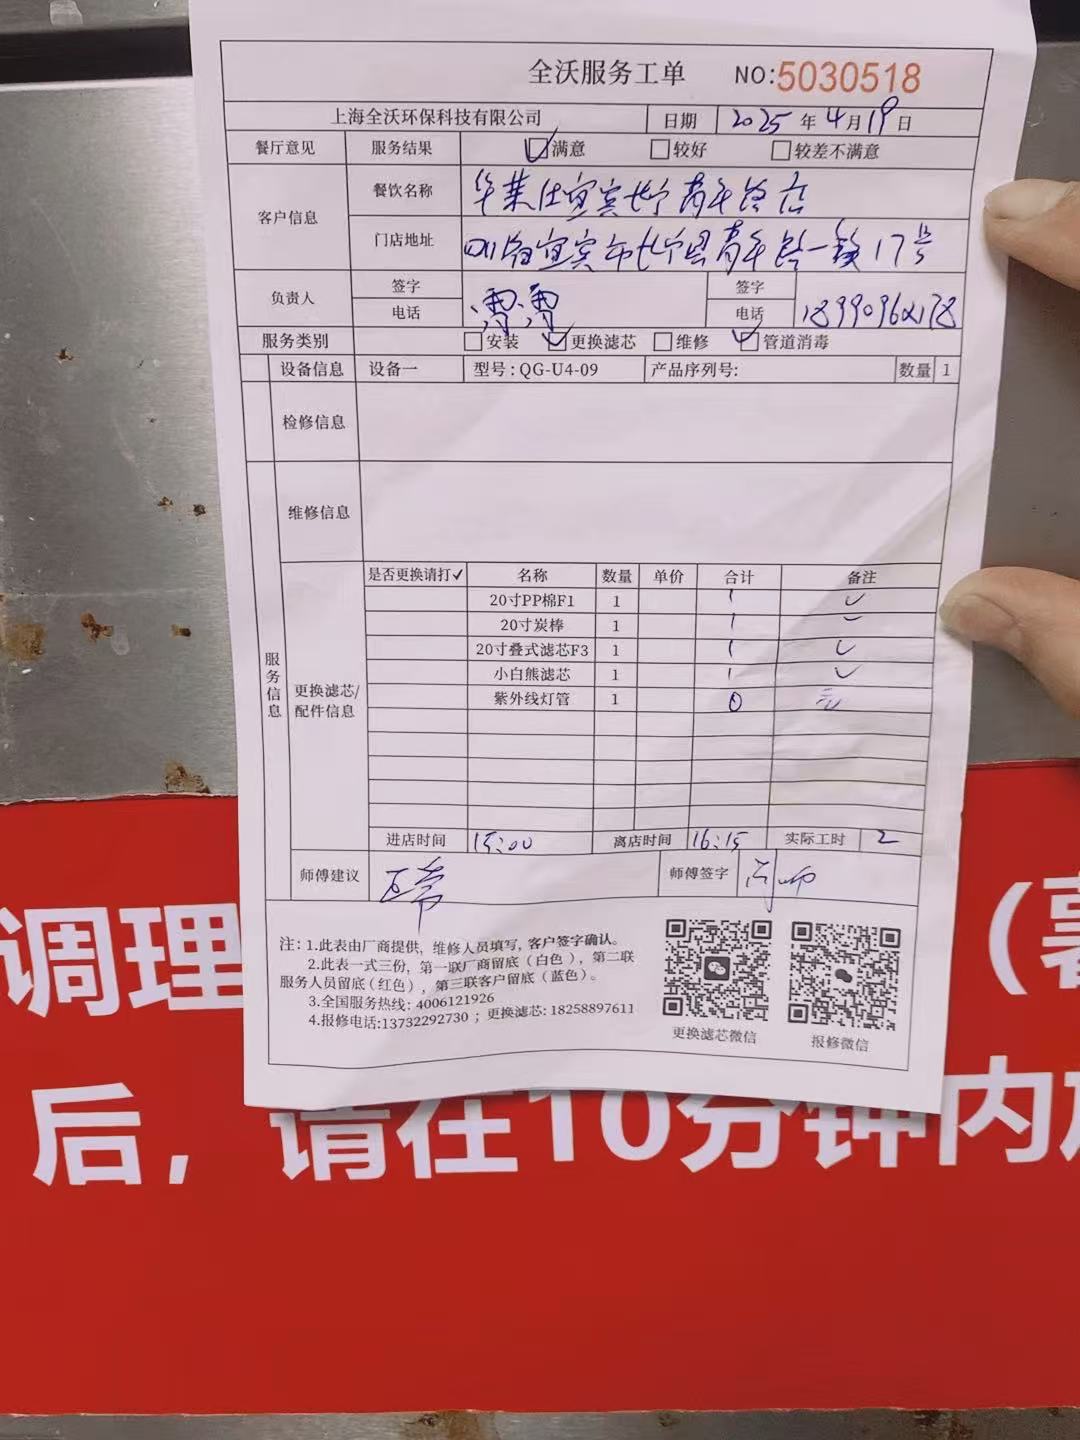 全沃服务工单 NO:5030518
上海全沃环保科技有限公司 日期 2025年4月19日
餐厅意见 服务结果 满意 较好 较差不满意
客户信息 餐饮名称 华莱仕宜宾长宁青年路店
门店地址 四川省宜宾市长宁县青年路一段17号
负责人 签字 签字
电话 电话
服务类别 安装 更换滤芯 维修 管道消毒
设备信息 设备一 型号:QG-U4-09 产品序列号: 数量 1
检修信息
维修信息
服务信息
更换滤芯/
配件信息
是否更换请打✓ 名称 数量 单价 合计 备注
20寸PP棉F1 1 1 ✓
20寸炭棒 1 1
20寸叠式滤芯F3 1 1 ✓
小白熊滤芯 1 1 ✓
紫外线灯管 1 0 无
进店时间 15:00 离店时间 16:15 实际工时 2
师傅建议 正常 师傅签字
注: 1.此表由厂商提供, 维修人员填写, 客户签字确认。
2.此表一式三份, 第一联厂商留底(白色), 第二联
服务人员留底(红色), 第三联客户留底(蓝色)。
3.全国服务热线: 4006121926
4.报修电话:13732292730 ; 更换滤芯: 18258897611
更换滤芯微信 报修微信
调理
后, 请在10分钟内